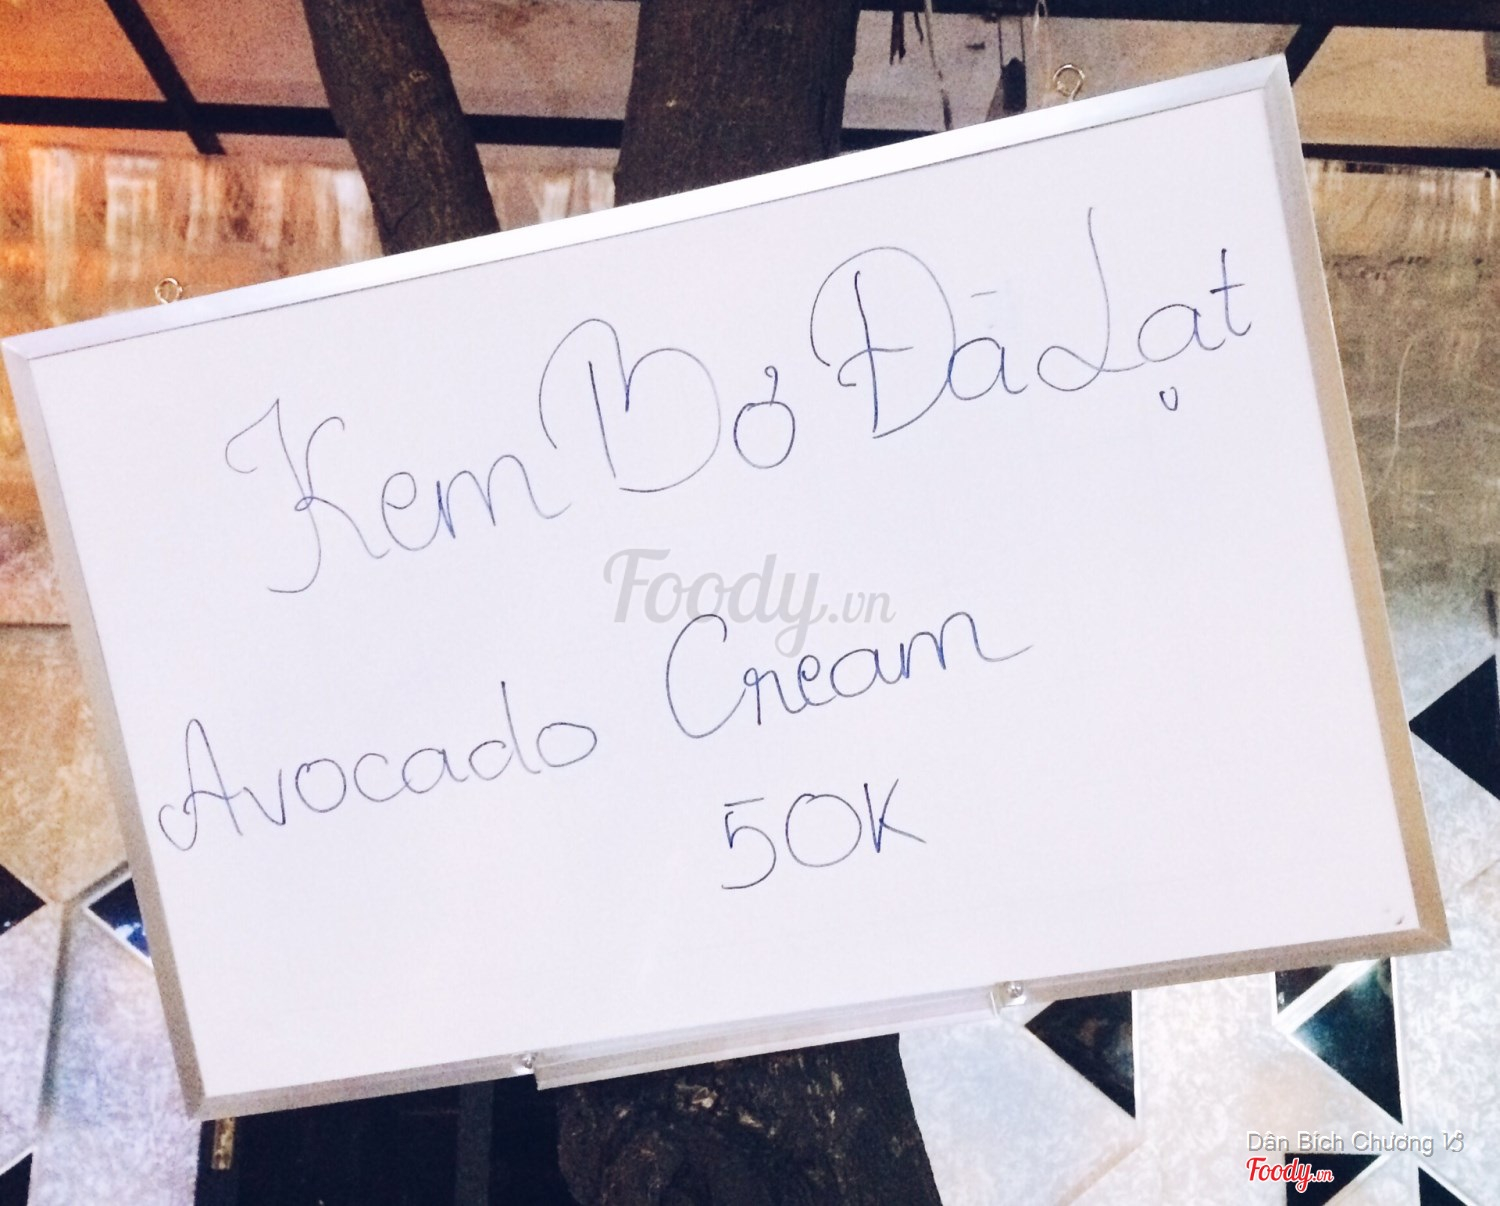 Kem Bơ Đà Lạt
Foody.vn
Avocado Cream
50K
Dân Bích Chương
Foody.vn